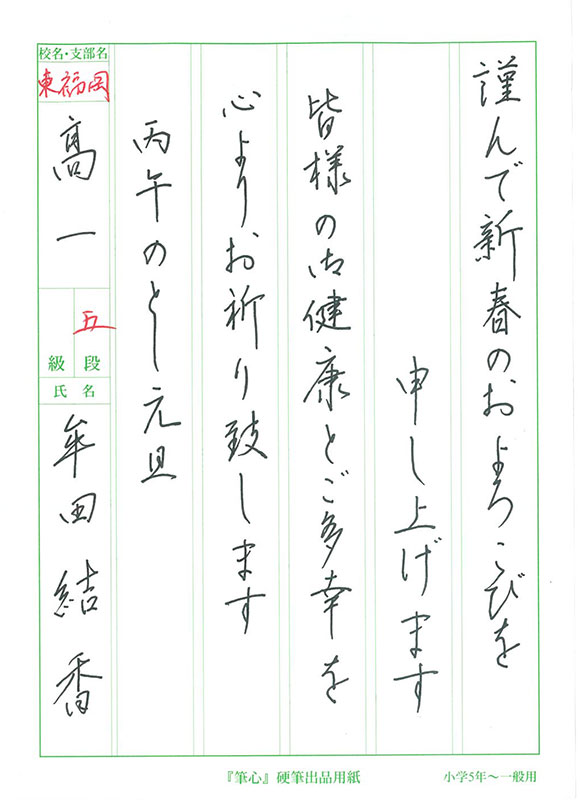 謹んで新春のおよろこびを
申し上げます
皆様の御健康とご多幸を
心よりお祈り致します
丙午のとし元旦
校名・支部名
東福岡
高一
五
段
級
氏名
牟田結香
『筆心』硬筆出品用紙
小学5年～一般用